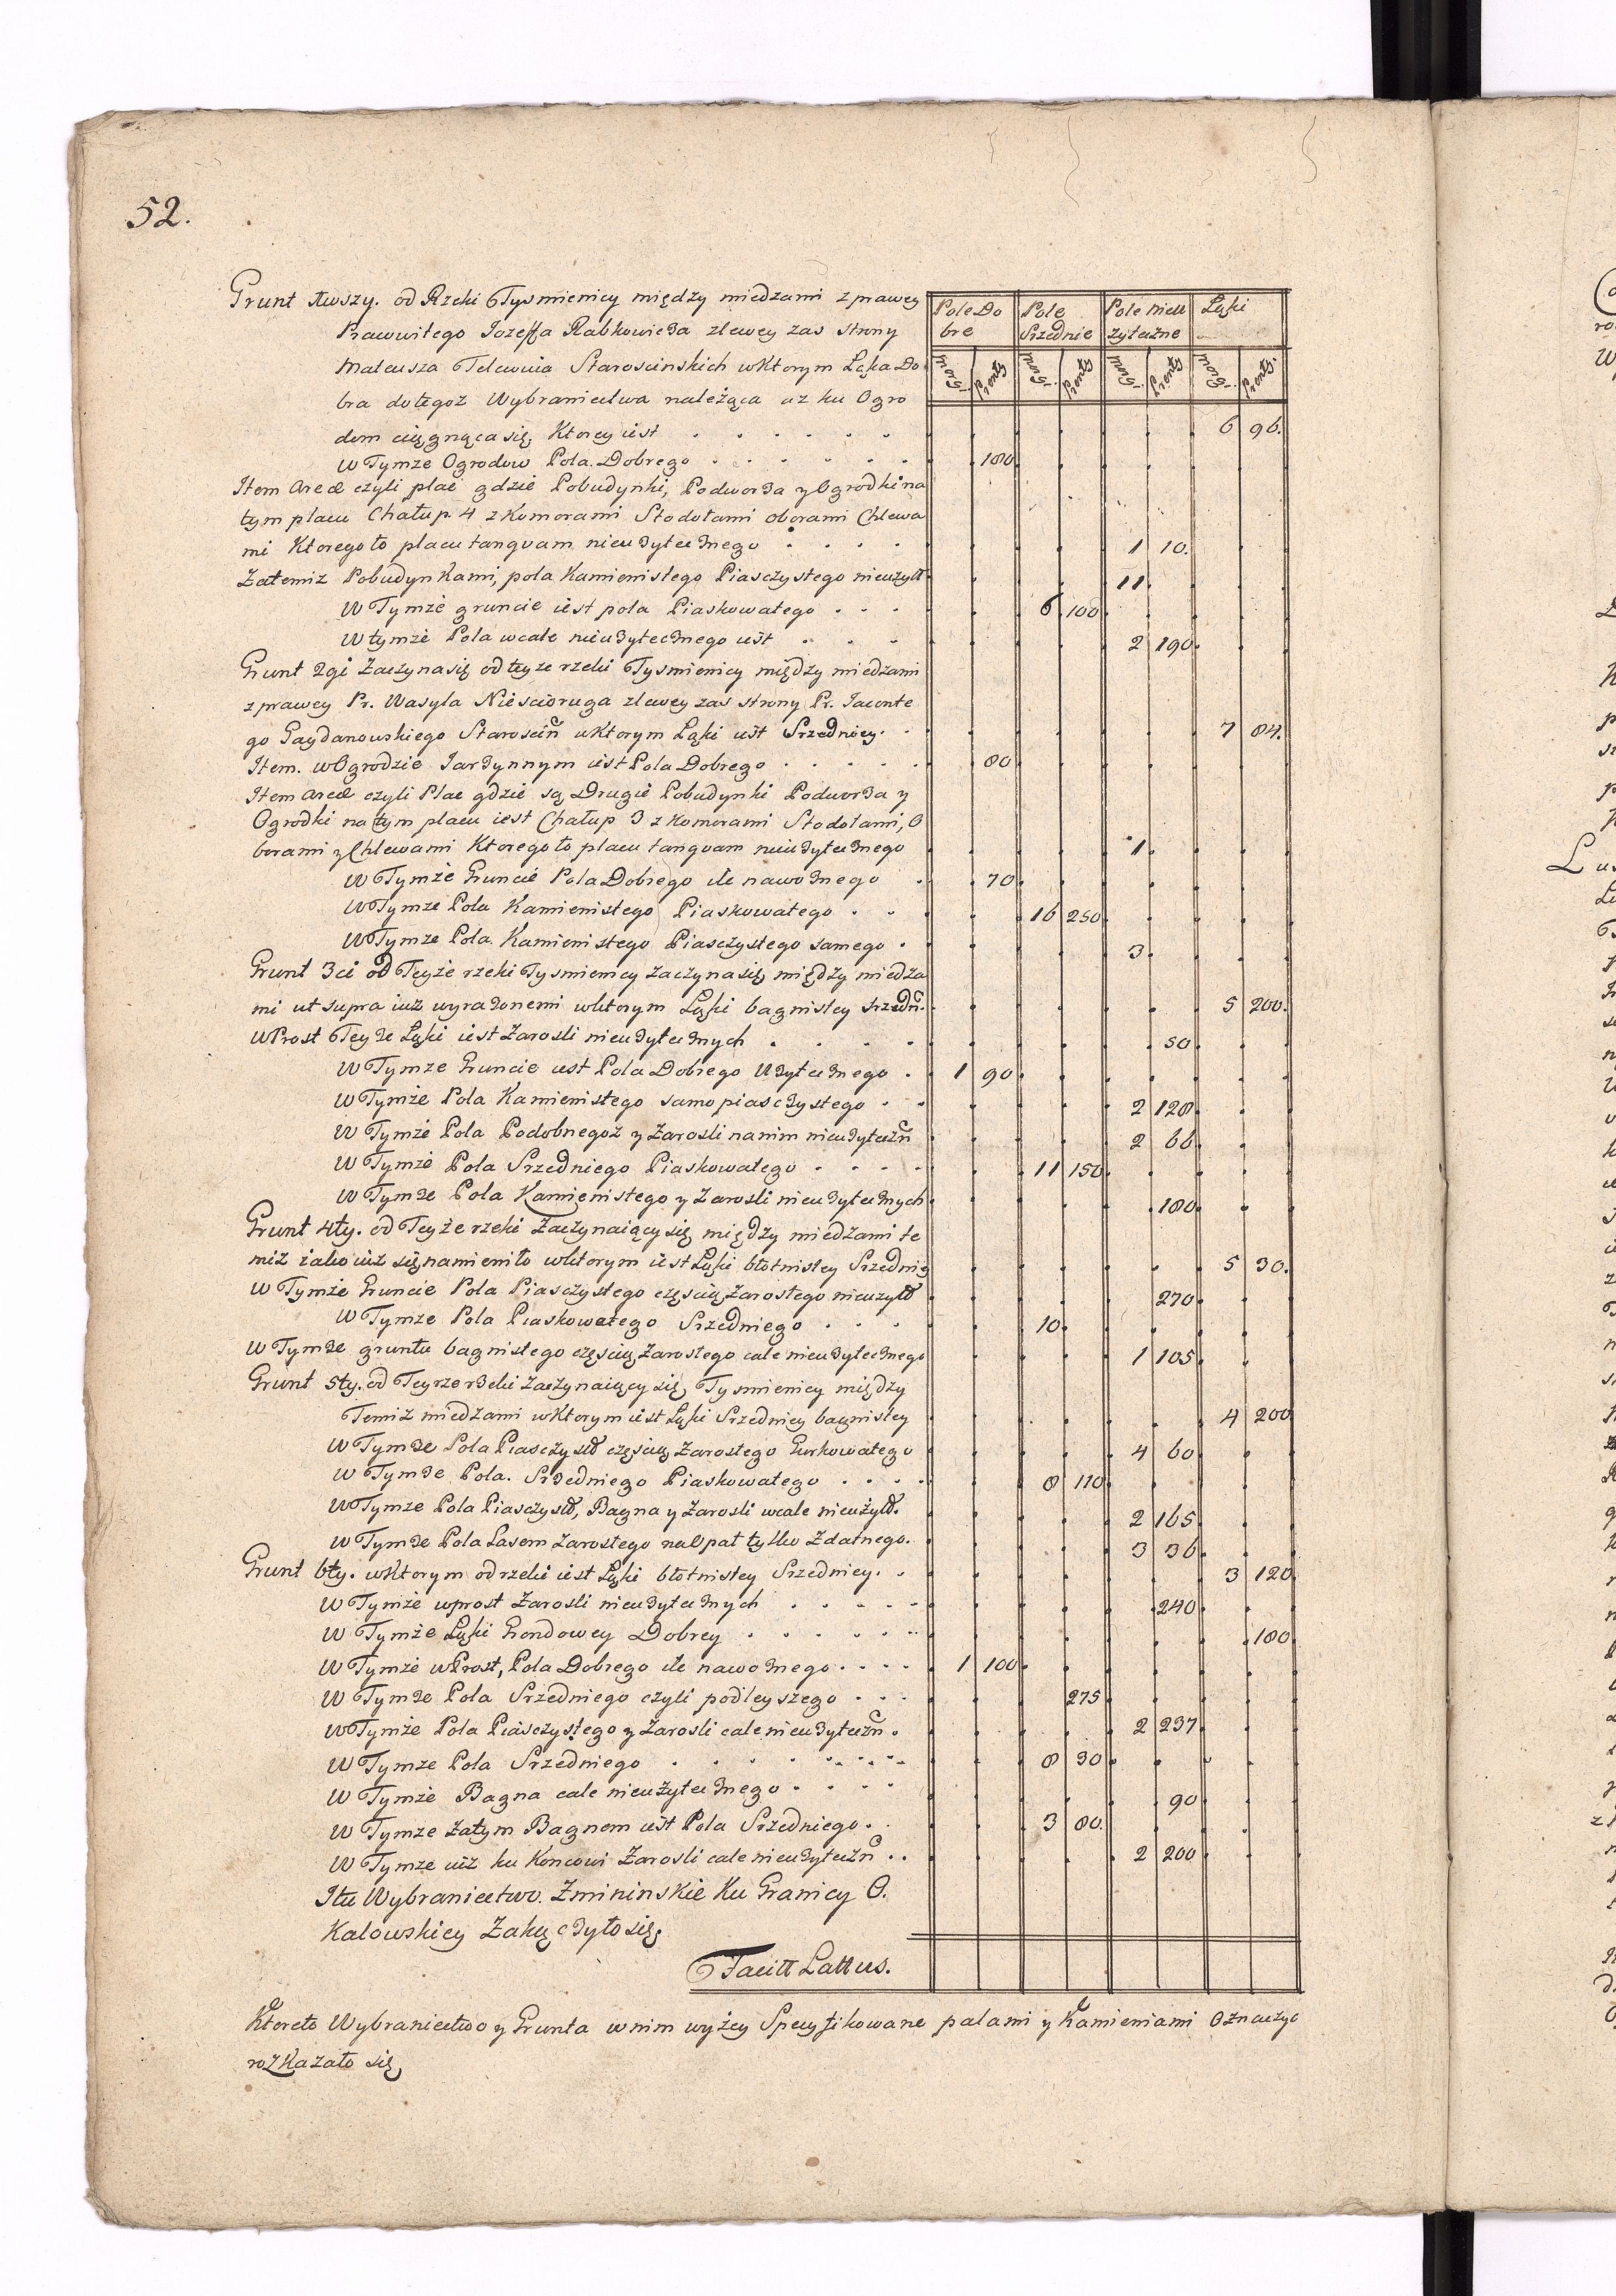 52.
Grunt 1wszy. od Rzeki Tysmienicy między miedzami z prawey
Prawowitego Iozeffa Rabkowicza zlewey zas strony
Mateusza Telewiia Staroscinskich wktorym Łąka Do
bra dotegoz Wybraniectwa należąca az ku Ogro
dom ciągnącasię, Ktorey iest . . . . . . 6 96.
W Tymze Ogrodow Pola Dobrego . . . . . . 180
Item Areæ czyli plac gdzie Pobudynki, Podworza y Ogrodki na
tym placu Chałup 4 z Komorami Stodołami Oborami Chlewa
mi Ktorego to placu tanquam nieuzytecznego . . . . 1 10.
Zatemiz Pobudynkami, pola Kamienistego Piasczystego nieużytt 11
W Tymże gruncie iest pola Piaskowatego . . . 6 100
W tymże Pola wcale nieuzytecznego iest . . . 2 190
Grunt 2gi Zaczynasię od teyze rzeki Tysmienicy między miedzami
z prawey Pr. Wasyla Niescioruga zlewey zas strony Pr. Iacente
go Gaydanowskiego Staroscin wktorym Łąki iest Srzedniey. 7 84.
Item. wOgrodzie Iarzynnym iest Pola Dobrego . . . . . 80
Item Areæ czyli Plac gdzie są Drugie Pobudynki Podworza y
Ogrodki na tym placu iest Chałup 3 z Komorami Stodołami, O
borami y Chlewami Ktorego to placu tanquam nieuzytecznego 1
W Tymże Gruncie Pola Dobrego ile nawoznego . 70
W Tymze Pola Kamienistego Piaskowatego . . 16 250
W Tymze Pola Kamienistego Piasczystego samego . 3
Grunt 3ci od Teyże rzeki Tysmienicy zaczynasię między miedza
mi ut supra iuz wyrazonemi wktorym Łąki bagnistey srzedn. 5 200.
WProst Teyze Łąki iest Zarosli nieuzytecznych . . . . 50
W Tymze Gruncie iest Pola Dobrego Uzytecznego . 1 90
W Tymże Pola Kamienistego samopiasczystego . . 2 128
W Tymże Pola Podobnegoz y Zarosli nanim nieuzyteczn 2 66
W Tymże Pola Srzedniego Piaskowatego . . . . 11 150
W Tymze Pola Kamienistego y Zarosli nieuzytecznych 180
Grunt 4ty. od Teyże rzeki Zaczynaiącysię między miedzami te
miż iako iuż się namieniło wktorym iest Łąki błotnistey Srzednie 5 30.
W Tymże Gruncie Pola Piasczystego częscią Zarosłego nieuzytt 270
W Tymze Pola Piaskowatego Srzedniego . . . 10
W Tymze gruntu bagnistego częscią Zarosłego cale nieuzytecznego 1 105
Grunt 5ty. od Teyrze rzeki Zaczynaiącysię Tysmienicy między
Temiż miedzami wktorym iest Łąki Srzedniey bagnistey 4 200
W Tymze Pola Piasczystt częscią Zarosłego Gurkowatego 4 60
W Tymze Pola. Srzedniego Piaskowatego . . . . 8 110
W Tymze Pola Piasczystt, Bagna y Zarosli wcale nieużytt. 2 165
W Tymze Pola Lasem Zarosłego naOpał tylko Zdatnego. 3 36
Grunt 6ty. wktorym od rzeki iest Łąki błotnistey Srzedniey. . 3 120
W Tymże wprost Zarosli nieuzytecznych . . . . . 240
W Tymże Łąki Grondowey Dobrey . . . . . . 180
W Tymże wProst, Pola Dobrego ile nawoznego . . . . 1 100
W Tymze Pola Srzedniego czyli podleyszego . . . 275
W Tymże Pola Piasczystego y Zarosli cale nieuzyteczn. 2 237
W Tymze Pola Srzedniego . . . . . . . . 8 30
W Tymże Bagna cale nieużytecznego . . . . 90
W Tymze Zatym Bagnem iest Pola Srzedniego . . 3 80
W Tymze iuż ku Koncowi Zarosli cale nieuzyteczn . . 2 200
Itu Wybraniectwo. Zmininskie Ku Granicy O.
Kalowskiey Zakączyłosię.
Facitt Lattus.
Pole Do
bre
Pole
Srzednie
Pole nieu
zyteczne
Łąki
Morgi. Pręty Morgi. Pręty Morgi. Pręty Morgi. Pręty.
Ktoreto Wybraniectwo y Grunta wnim wyżey Specyfikowane palami y Kamieniami Oznaczyc
rozkazało się